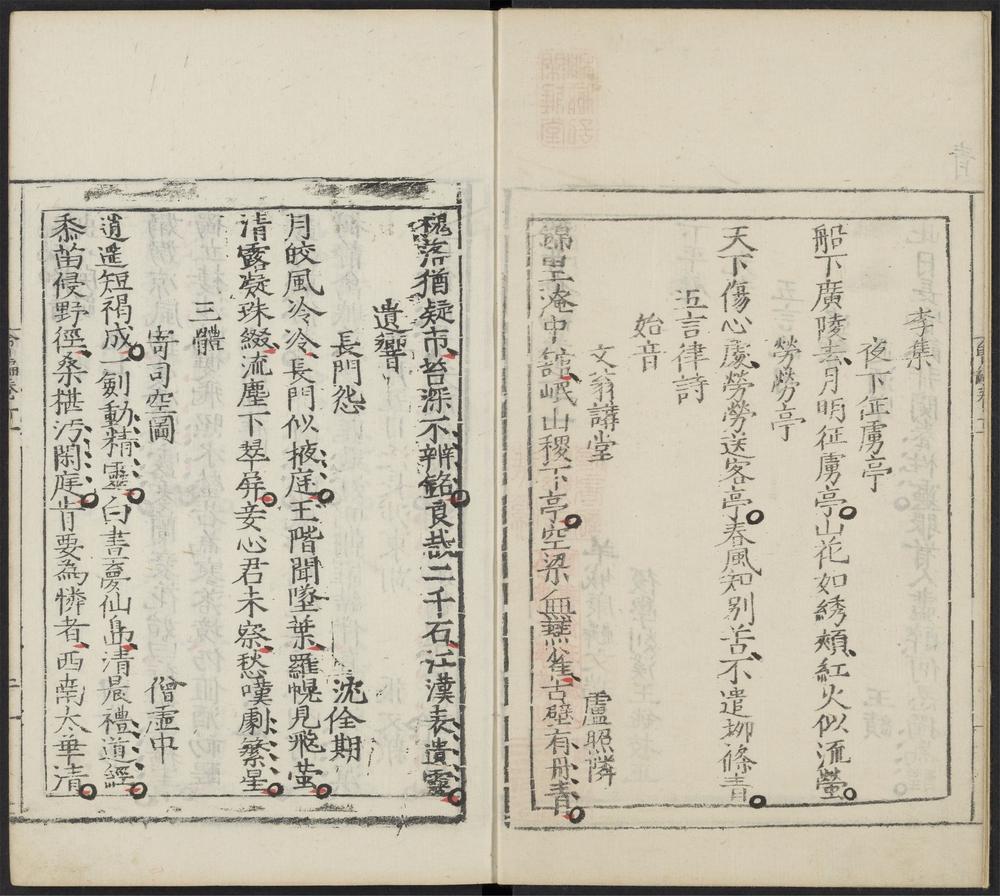 李集
夜下征虜亭
船下廣陵去月明征虜亭山花如綉頰紅火似流螢
勞勞亭
天下傷心處勞勞送客亭春風知別苦不遣柳條青
五言律詩
始音
文翁講堂 盧照隣
錦里淹中舘岷山稷下亭空梁無燕雀古壁有丹青
槐落猶疑市苔深不辨銘良哉二千石江漢表遺靈
遺響
長門怨 沈佺期
月皎風冷冷長門似掖庭玉階聞墜葉羅幌見飛螢
清露凝珠綴流塵下翠屏妾心君未察愁嘆劇繁星
三體
寄司空圖 僧虛中
逍遥短褐成一劍動精靈白晝夢仙島清晨禮道經
黍苗侵野徑桑椹汚閑庭肯要為憐者西南太華清